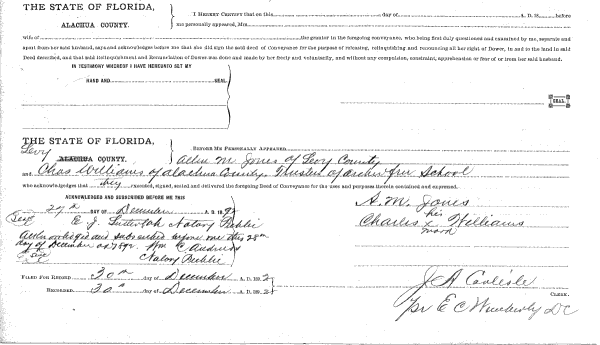 THE STATE OF FLORIDA,
ALACHUA COUNTY.
I HEREBY CERTIFY that on this day of A. D. 18 before
me personally appeared, Mrs.
wife of the grantor in the foregoing conveyance, who being first duly questioned and examined by me, separate and
apart from her said husband, says and acknowledges before me that she did sign the said deed of Conveyance for the purpose of releasing, relinquishing and renouncing all her right of Dower, in and to the land in said
Deed described, and that said Relinquishment and Renunciation of Dower was done and made by her freely and voluntarily, and without any compulsion, constraint, apprehension or fear of or from her said husband.
IN TESTIMONY WHEREOF I HAVE HEREUNTO SET MY
HAND AND SEAL
SEAL
THE STATE OF FLORIDA,
Levy
ALACHUA COUNTY.
BEFORE ME PERSONALLY APPEARED
Allen M Jones of Levy County
and Chas Williams of Alachua County Trustees of Archer free School
who acknowledges that they executed, signed, sealed and delivered the foregoing Deed of Conveyance for the uses and purposes therein contained and expressed.
ACKNOWLEDGED AND SUBSCRIBED BEFORE ME THIS
27th DAY OF December A. D. 1892
E. J. Notary Public
and subscribed before me this 28th
day of December AD 1892 Wm E
Notary Public
A. M. Jones
his
Charles x Williams
mark
FILED FOR RECORD 30th day of December A. D. 1892
RECORDED 30th day of December A. D. 1892
J A Carlisle
CLERK.
pr E C Wimberly DC